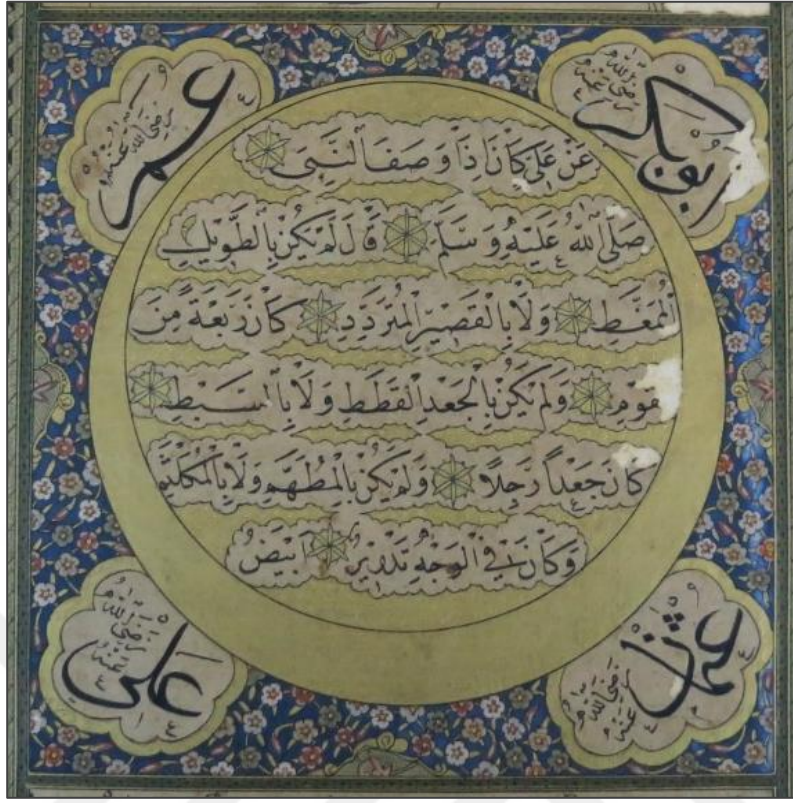 ابو بكر رضى الله عنه
عمر رضى الله عنه
عَنْ عَلِىٍّ كَانَ اِذَا وَصَفَ النَّبِىَّ
صَلَّى اللّٰهُ عَلَيْهِ وَسَلَّمَ قَالَ لَمْ يَكُنْ بِالطَّوِيلِ
الْمُمَغَّطِ وَلَا بِالْقَصِيرِ الْمُتَرَدِّدِ كَانَ رَبْعَةً مِنَ
الْقَوْمِ وَلَمْ يَكُنْ بِالْجَعْدِ الْقَطَطِ وَلَا بِالسَّبِطِ
كَانَ جَعْداً رَجِلاً وَلَمْ يَكُنْ بِالْمُطَهَّمِ وَلَا بِالْمُكَلْثَمِ
وَكَانَ فِى الْوَجْهِ تَدْوِيرٌ اَبْيَضُ
عثمان رضى الله عنه
على رضى الله عنه